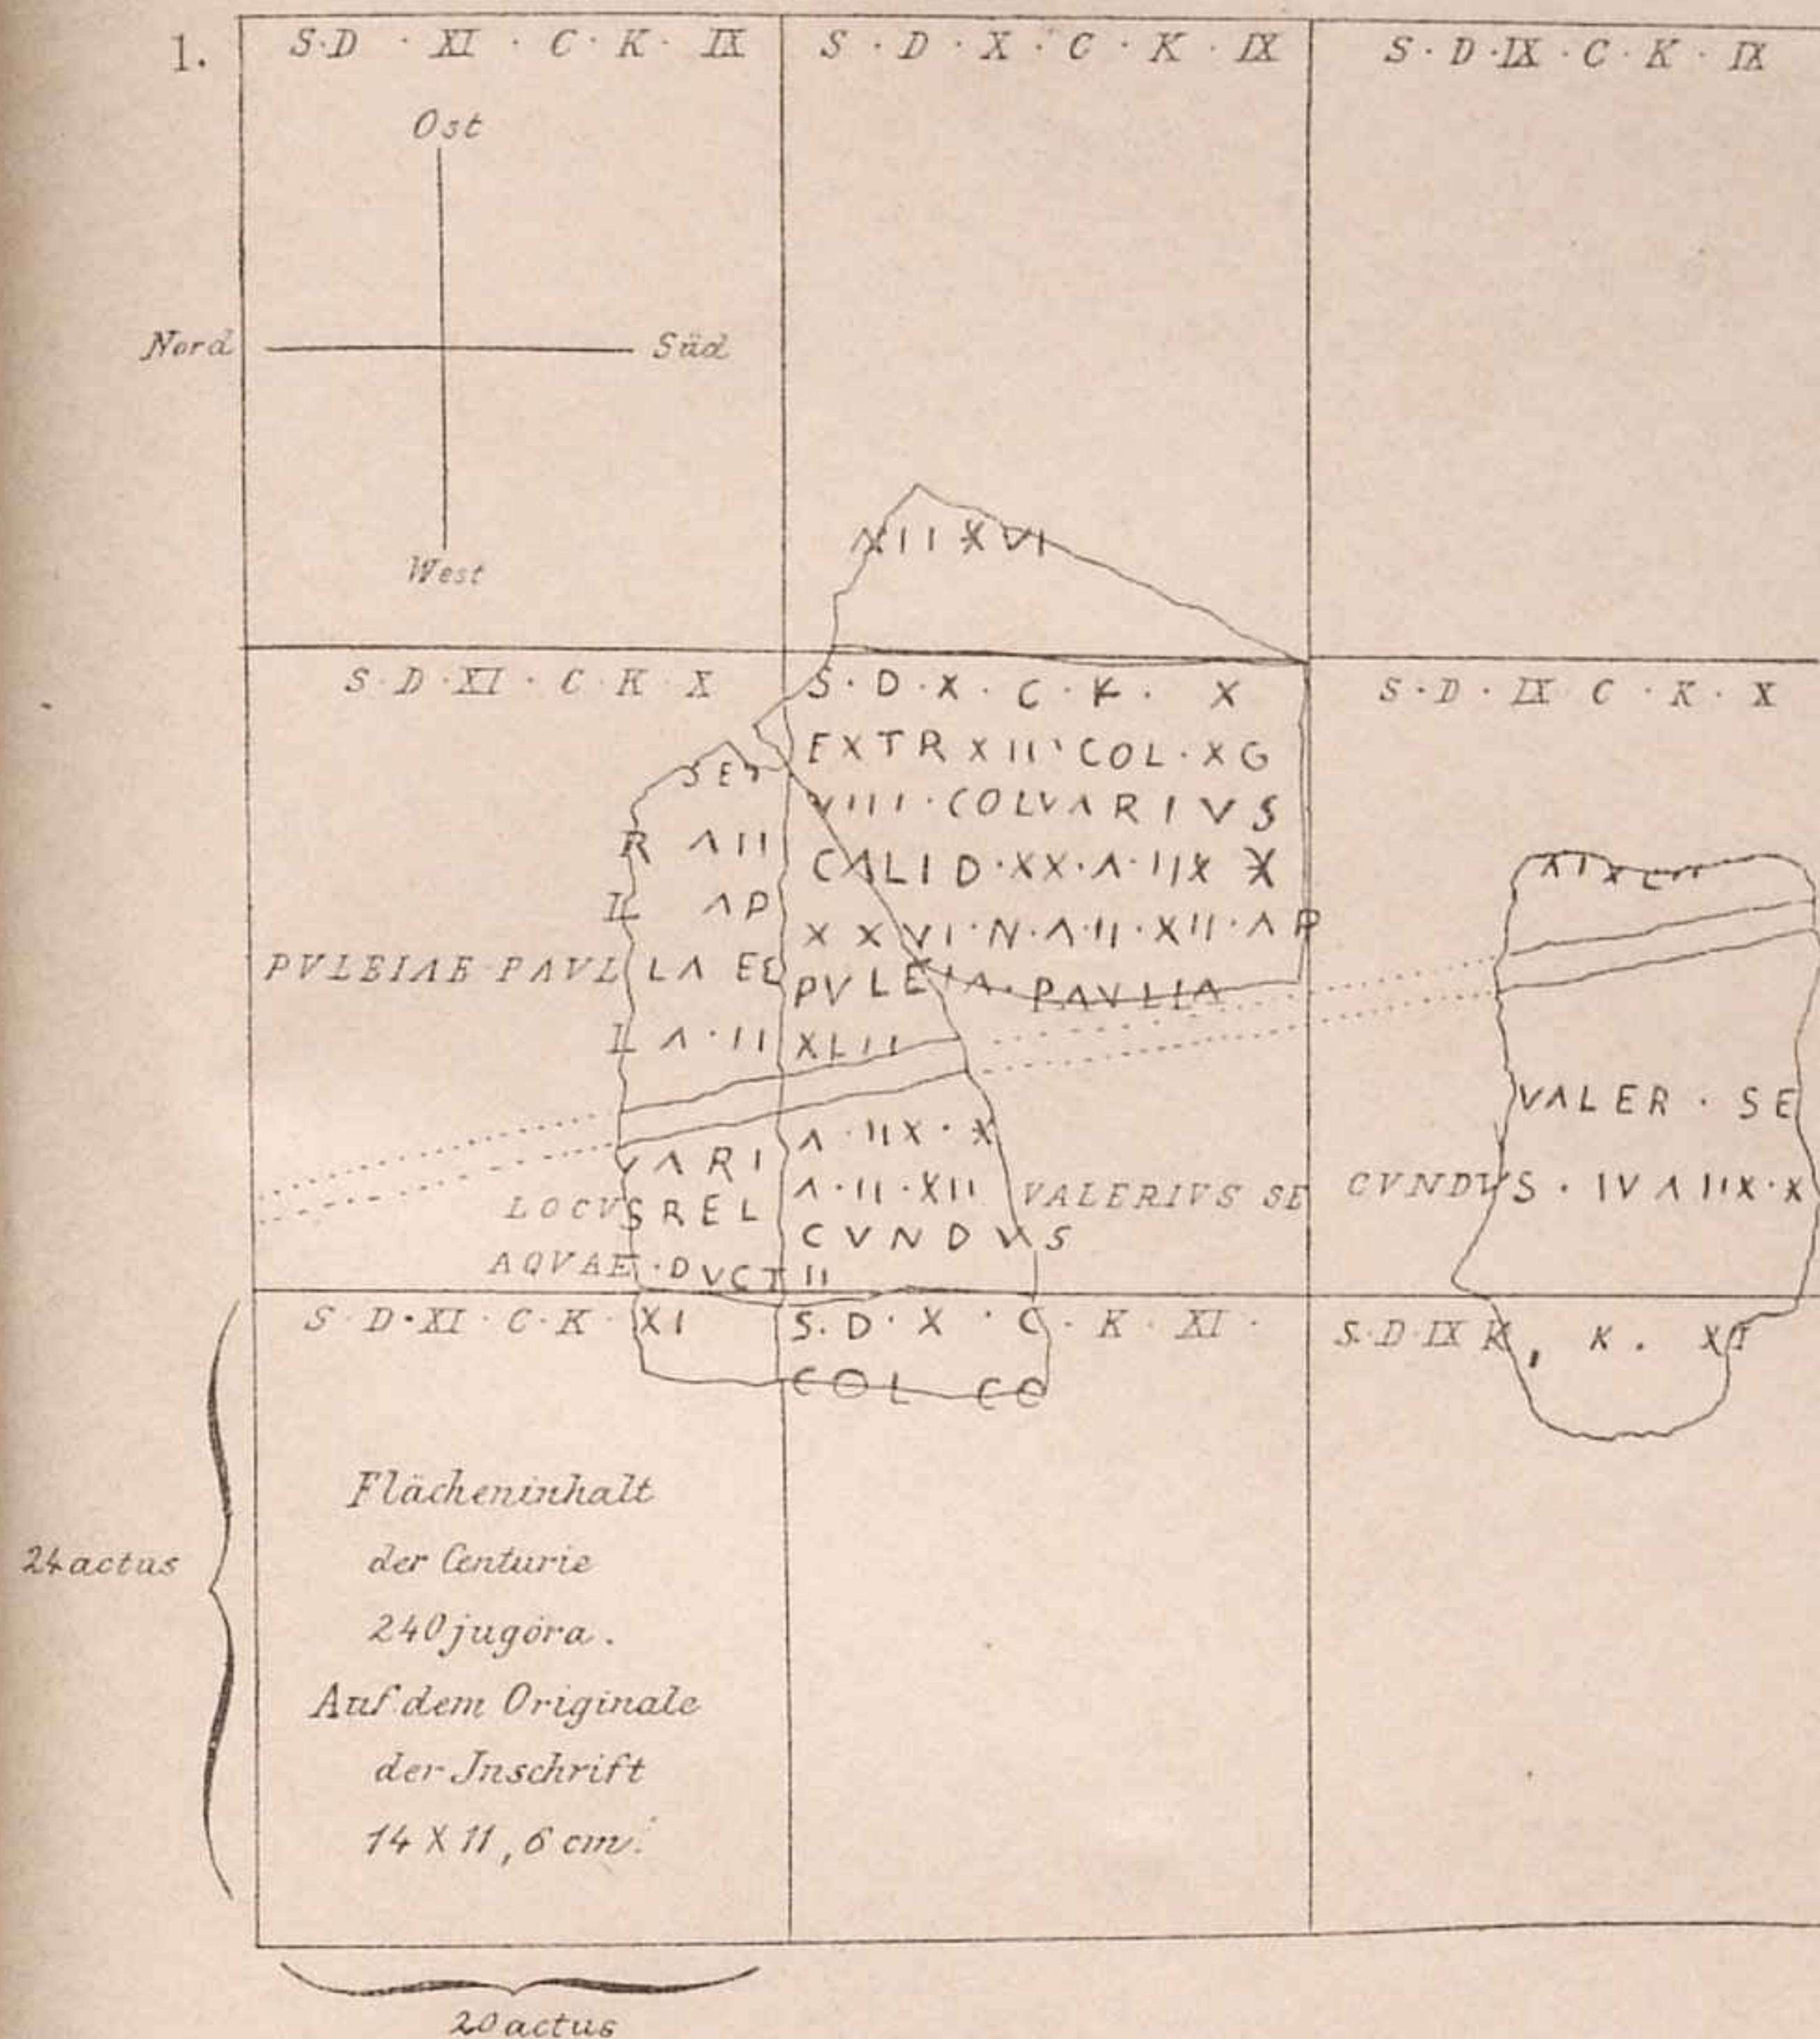 1.
S·D · XI · C · K · IX
S · D · X · C · K · IX
S · D · IX · C · K · IX
Ost
Nord
Süd
West
XVI
S·D·XI · C·K·X
S·D·X·C·K· X
S·D·IX C·K·X
SE
EXTR XII·COL·XG
VIII·COLVARIVS
R Λ II
CALID·XX·Λ·IIX X
L ΛP
X X VI·N·Λ·II·XII·ΛP
PVLEIAE PAVL LA EE
PVLEIA·PAVLLA
L Λ·II XLII
Λ·IIX·X
VALER · SE
VARI
Λ·II·XII
VALERIVS SE
CVNDVS · IV Λ IIX·X
LOCVS REL
CVNDVS
AQVAE·DVCT II
S·D·XI·C·K·XI
S·D·X·C·K·XI·
S·D·IX K, K. XI
COL CO
24 actus
Flächeninhalt
der Centurie
240 jugéra.
Auf dem Originale
der Jnschrift
14 X 11,6 cm.
20 actus